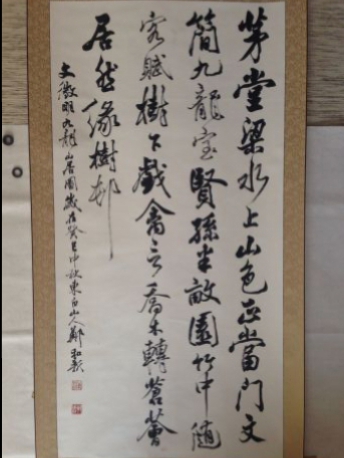 茅堂梁水上山色正當門文
簡九龍宝賢孫半畝園竹中随
客賦樹下戲禽言喬木轉蒼薈
居然緣樹邨
文徵明九龍山居圖歲在癸巳中秋東白山人鄭和